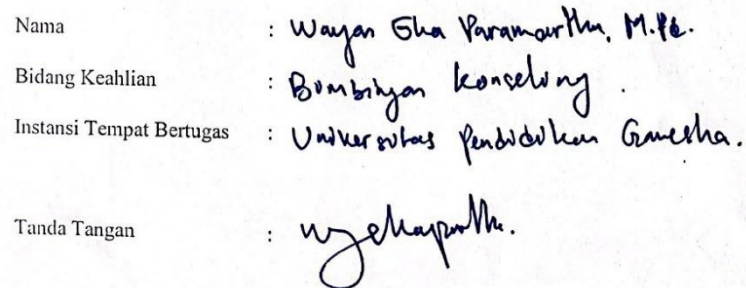 Nama : Wayan Eka Paramartha, M.Pd.
Bidang Keahlian : Bimbingan Konseling.
Instansi Tempat Bertugas : Universitas Pendidikan Ganesha.
Tanda Tangan :